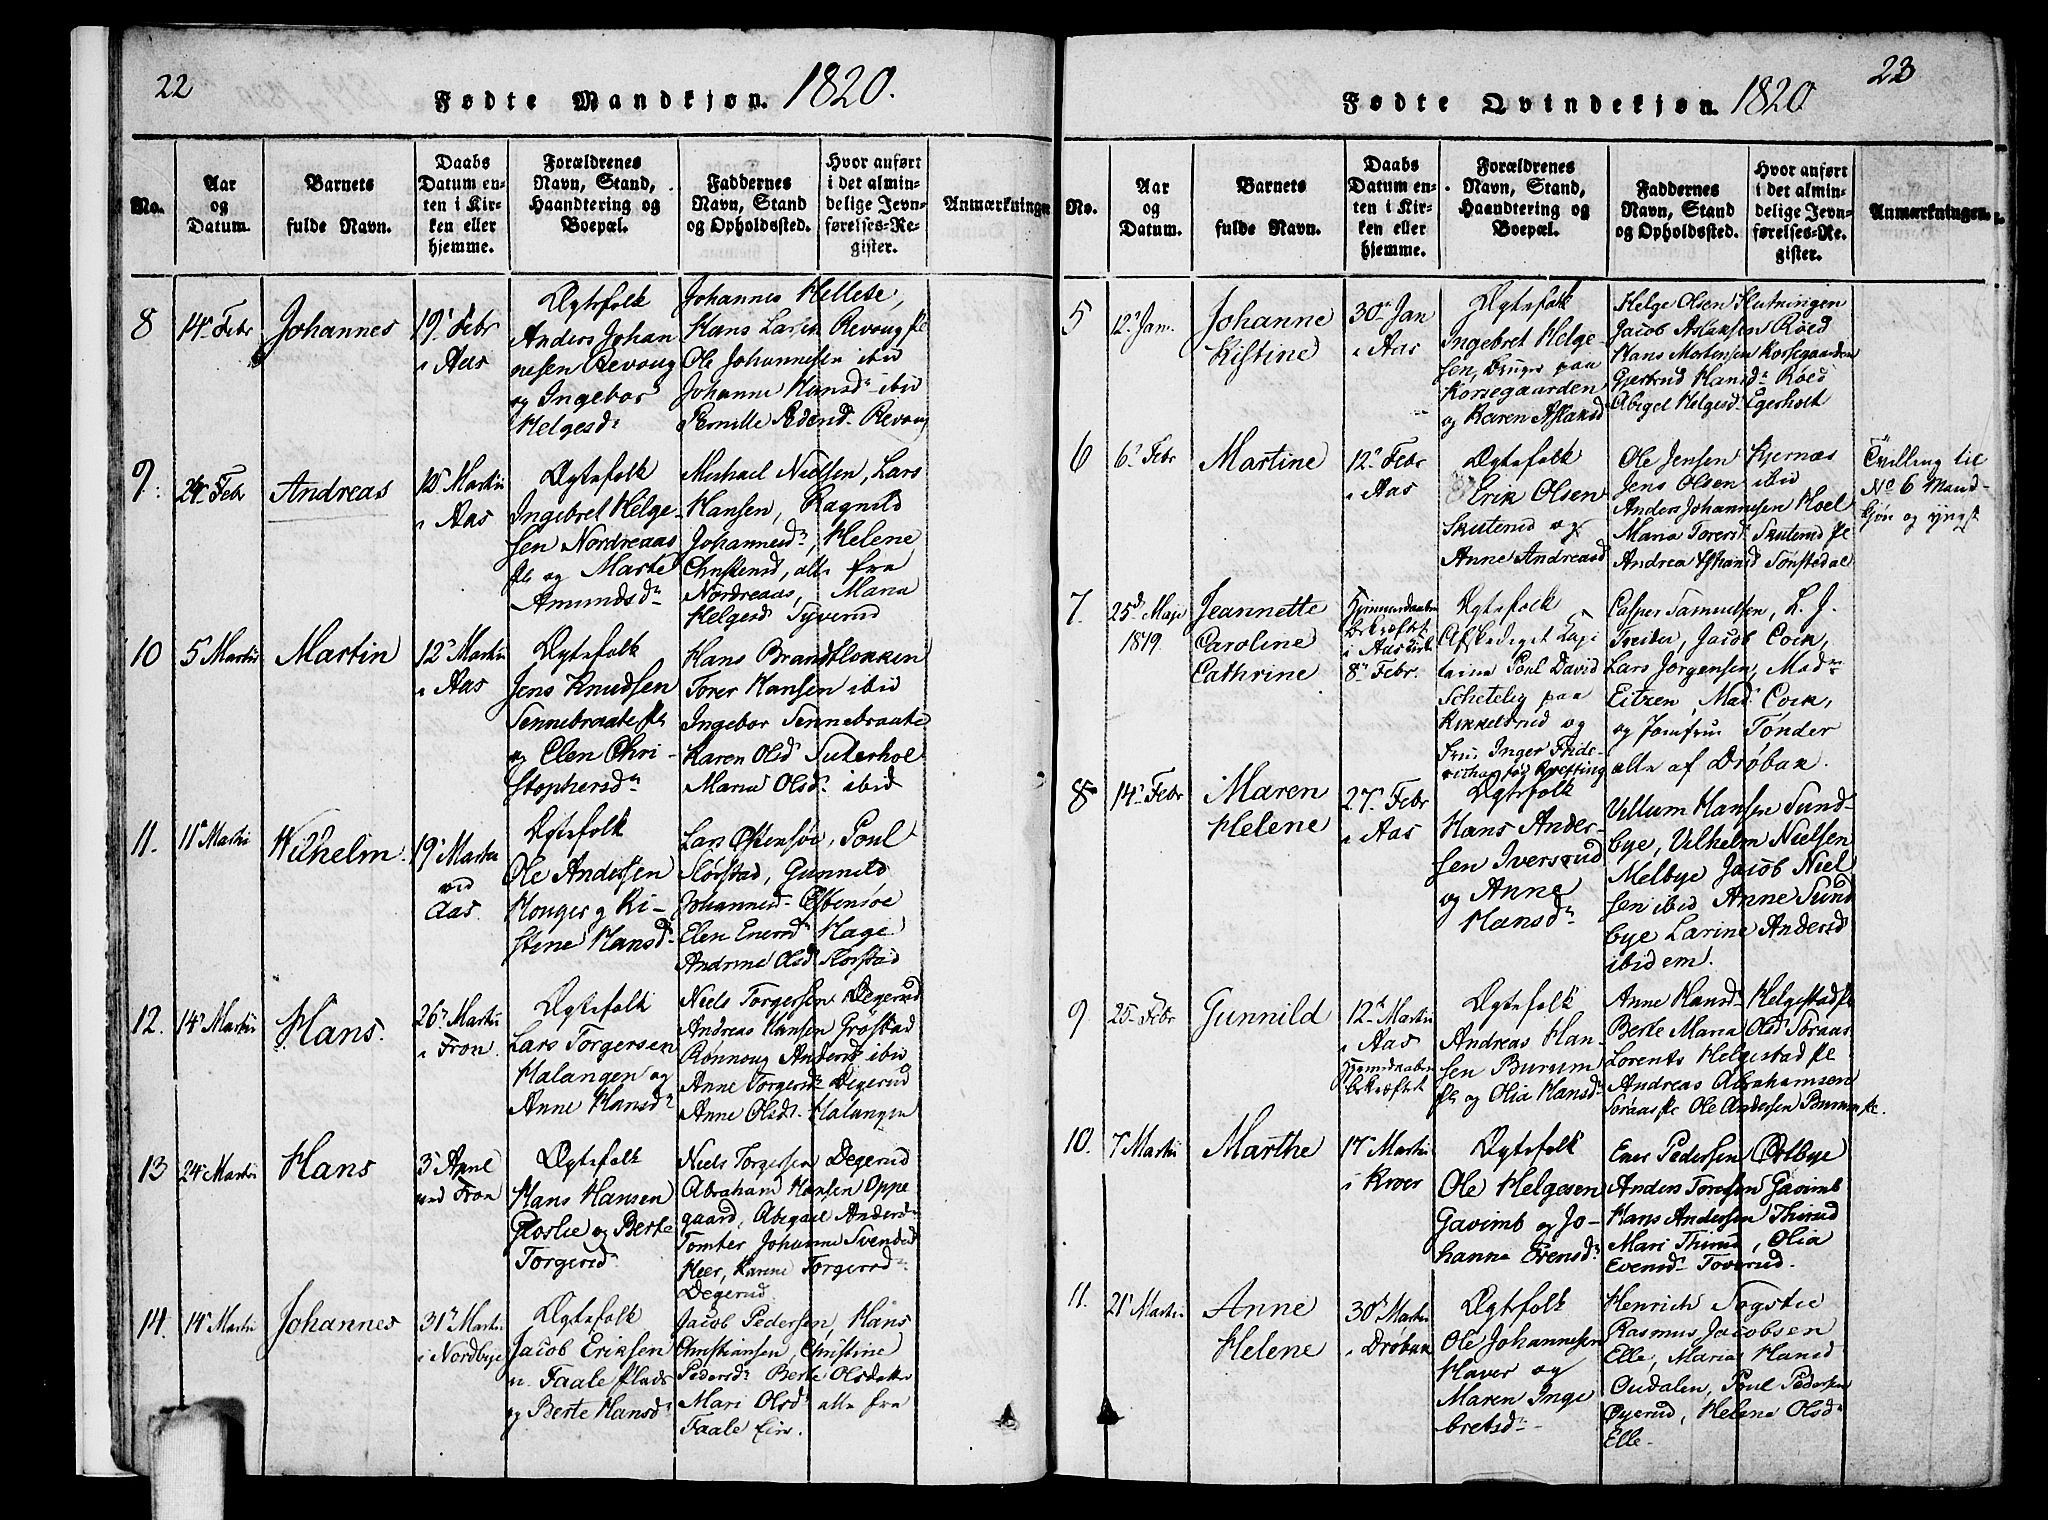 22
Fødte Mandkjøn. 1820.
No.
Aar
og
Datum.
Barnets
fulde Navn.
Daabs
Datum en-
ten i Kir-
ken eller
hjemme.
Forældrenes
Navn, Stand,
Haandtering og
Boepæl.
Faddernes
Navn, Stand
og Opholdssted.
Hvor anført
i det almin-
delige Jevn-
førelses-Re-
gister.
Anmærkninger
8
14 Febr
Johannes
19 Febr
i Aas
Ægtefolk
Anders Johan
nesen Revoug
og Ingebor
Helgesd
Johannes Hellese,
Hans Larsen Revoug
Ole Johannesen ibid
Johanne Hansd ibid
Pernille Pedersd Revoug
9.
24 Febr
Andreas
12 Martii
i Aas
Ægtefolk
Ingebret Helge-
sen Nordreaas
og Marte
Amundsd
Michael Nielsen, Lars
Hansen, Ragnild
Johannesd, Helene
Christensd, alle fra
Nordreaas, Maria
Helgesd Tyverud
10
5 Martii
Martin
12 Martii
i Aas
Ægtefolk
Jens Knudsen
Sennebraate
og Elen Chri-
stophersd
Hans Brandtløkken
Torer Hansen ibid
Ingebor Sennebraate
Karen Olsd Suterhol
Maria Olsd ibid
11.
11 Martii
Wilhelm
19 Martii
ved
Aas.
Ægtefolk
Ole Andersen
Houger og Ki-
stene Hansd
Lars Østensøe, Poul
Slørstad, Gunnild
Johannesd Østensøe
Elen Enersd Hage
Andrine Olsd Slorstad
12.
14 Martii
Hans.
26 Martii
i Fron.
Ægtefolk
Lars Torgersen
Halangen og
Anne Hansd
Niels Torgersen Degerud
Andreas Hansen Frøstad
Rønnoug Andersd ibid
Anne Torgersd Degerud
Anne Olsd Halangen
13
24 Martii
Hans
3 Aprie
ved Fron
Ægtefolk
Hans Hansen
Gloslie og Berte
Torgersd
Niels Torgersen Degerud
Abraham Hansen Oppe
gaard, Abigael Andersd
Tomter Johanne Svendsd
Heer, Karene Torgersd
Degerud
14.
14 Martii
Johannes
31 Martii
i Nordbye
Ægtefolk
Jacob Eriksen
u. Faale Plads
og Berte Hansd
Jacob Pedersen, Hans
Christiansen, Christine
Pedersd Berte Olsdatter
Mari Olsd alle fra
Faale Eie.
23
Fødte Qvindekjøn. 1820
No.
Aar
og
Datum.
Barnets
fulde Navn.
Daabs
Datum en-
ten i Kir-
ken eller
hjemme.
Forældrenes
Navn, Stand,
Haandtering og
Boepæl.
Faddernes
Navn, Stand
og Opholdssted.
Hvor anført
i det almin-
delige Jevn-
førelses-Re-
gister.
Anmærkninger.
5
12 Jan.
Johanne
Kistine
30 Jan
i Aas
Ægtefolk
Ingebret Helge-
sen, Bruger paa
Korsegaarden
og Karen Aslaksd
Helge Olsen Hutningen
Jacob Aslaksen Røed
Hans Mortensen Korsegaarden
Gjertrud Hansd Røed
Abigel Helgesd Egerholt
6
6 Febr
Martine
12 Febr
i Aas
Ægtefolk
Erik Olsen
Skuterud og
Anne Andreasd
Ole Jensen Kjernæs
Jens Olsen ibid
Anders Johannesen Hoel
Maria Torersd Skuterud
Andrea Sønstedal
Tvilling til
No 6 Mand-
kjøn og yngst
7.
25 Maji
1819.
Jeannette
Caroline
Cathrine
Hjemmedaaben
bekræftet
i Aas Kirke
8 Febr.
Ægtefolk
Afskediget Capi
taine Poul David
Schetelig paa
Kikkelsrud og
Frue Inger Fride-
richa fød Kretting
Casper Samuelsen, L. J.
Treider, Jacob Cock,
Lars Jørgensen, Mad
Eitzen, Mad Cock,
og Jomfrue Tønder
alle af Drøbak.
8
14 Febr
Maren
Helene
27 Febr
i Aas
Ægtefolk
Hans Ander-
sen Iversrud
og Anne
Hansd
Villum Hansen Sund-
bye, Vilhelm Nielsen
Melbye Jacob Niel
sen ibid Anne Sund
bye Larine Andersd
ibidem.
9
25 Febr
Gunnild
12 Martii
i Aas
Hjemdaaben
bekræftet
Ægtefolk
Andreas Han-
sen Burum
og Olia Hansd
Anne Hansd Helgestad
Berte Maria Olsd Soraas
Lorents Helgestad
Andreas Abrahamsen
Soraas Ole Andersen Burum
10.
7 Martii
Marthe
17 Martii
i Kroer
Ægtefolk
Ole Helgesen
Gavimb og Jo-
hanna Evensd
Ener Pedersen Østbye
Anders Toresen Gavimb
Hans Andersen Thirud
Mari Thirud, Olia
Evensd Toverud.
11.
21 Martii
Anne
Helene
30 Martii
i Drobak
Ægtefolk
Ole Johannesen
Haver og
Maren Inge
bretsd
Henrich Sogstie
Rasmus Jacobsen
Elle, Marias Hansd
Oudalen, Poul Pedersen
Øyerud, Helene Olsd
Elle.